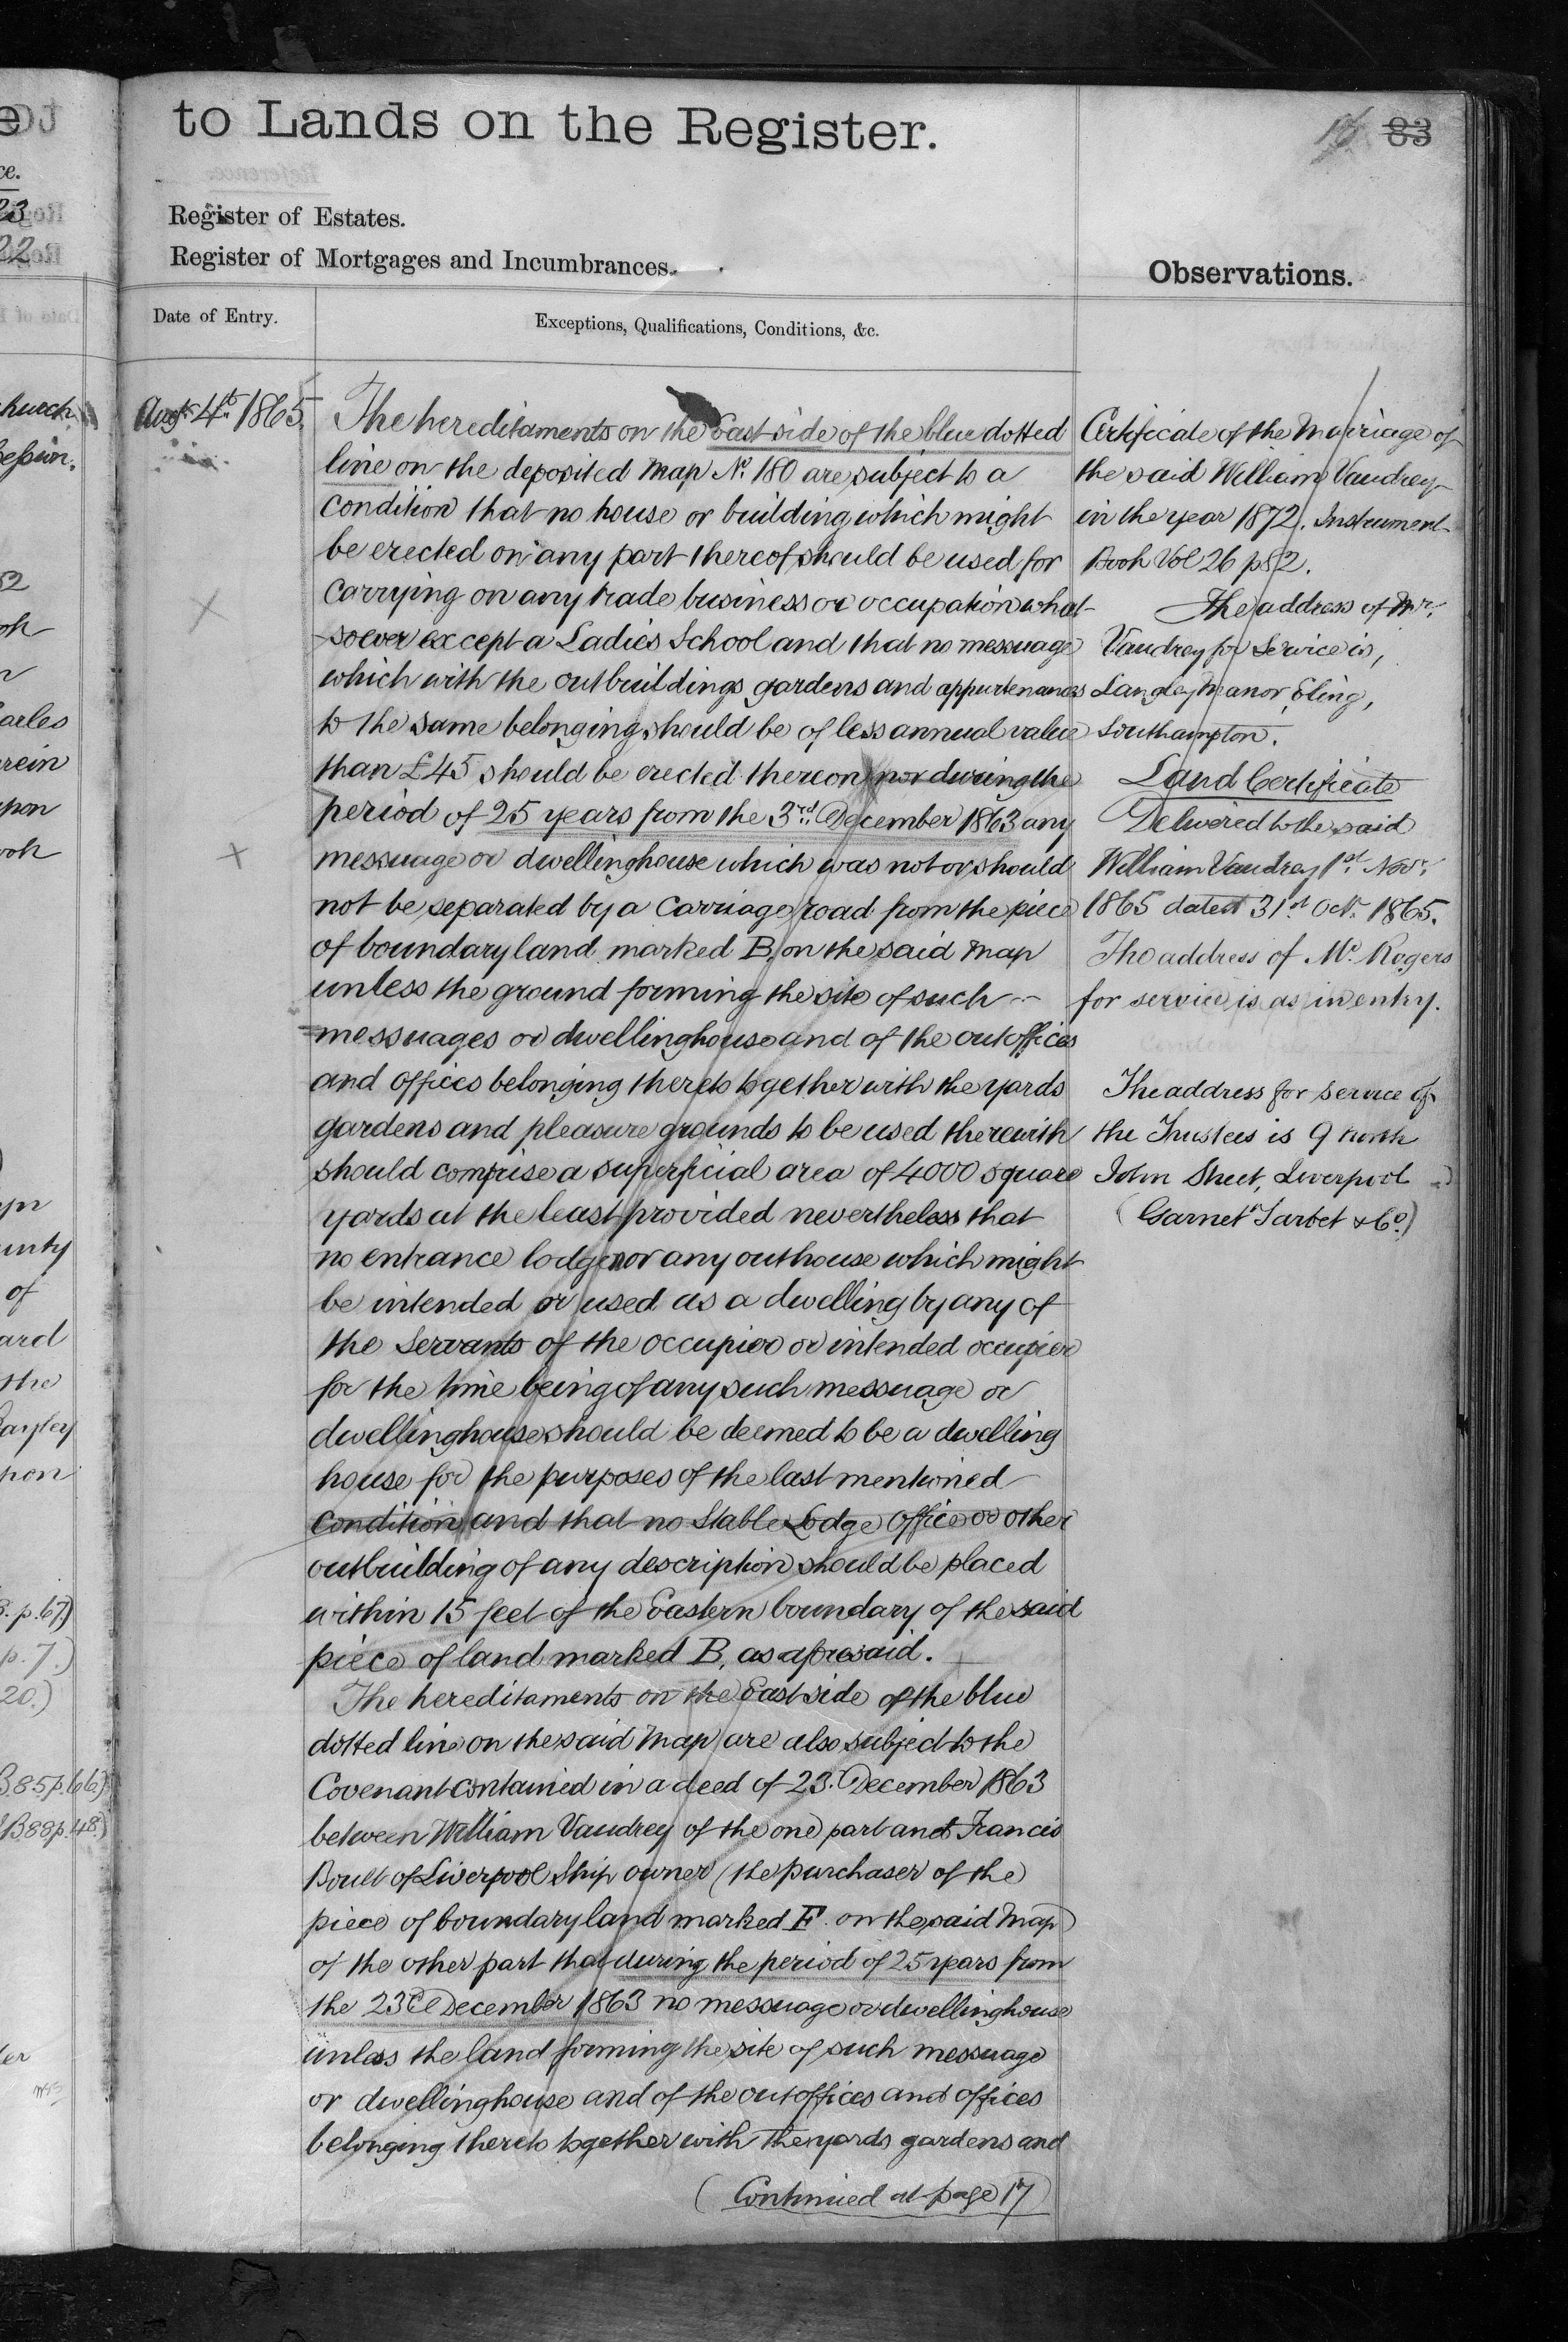 to Lands on the Register.
83
Register of Estates.
Register of Mortgages and Incumbrances.
Observations.
Date of Entry.
Exceptions, Qualifications, Conditions, &c.
Augt. 4th. 1865.
The hereditaments on the East side of the blue dotted
line on the deposited Map No. 180 are subject to a
condition that no house or building which might
be erected on any part thereof should be used for
carrying on any trade business or occupation what-
soever except a Ladies School and that no messuage
which with the outbuildings gardens and appurtenances
to the same belonging should be of less annual value
than £45 should be erected thereon nor during the
period of 25 years from the 3rd. December 1863 any
messuage or dwellinghouse which was not or should
not be separated by a carriage road from the piece
of boundary land marked B. on the said Map
unless the ground forming the site of such
messuages or dwellinghouse and of the outoffices
and offices belonging thereto together with the yards
gardens and pleasure grounds to be used therewith
should comprise a superficial area of 4000 square
yards at the least provided nevertheless that
no entrance lodge nor any outhouse which might
be intended or used as a dwelling by any of
the Servants of the occupier or intended occupier
for the time being of any such messuage or
dwellinghouse should be deemed to be a dwelling
house for the purposes of the last mentioned
condition and that no Stable Lodge Office or other
outbuilding of any description should be placed
within 15 feet of the Eastern boundary of the said
piece of land marked B, as aforesaid.
The hereditaments on the East side of the blue
dotted line on the said Map are also subject to the
Covenant contained in a deed of 23. December 1863
between William Vaudrey of the one part and Francis
Boult of Liverpool Ship owner (the purchaser of the
piece of boundary land marked F. on the said Map)
of the other part that during the period of 25 years from
the 23rd December 1863 no messuage or dwellinghouse
unless the land forming the site of such messuage
or dwellinghouse and of the outoffices and offices
belonging thereto together with the yards gardens and
(Continued at page 17)
Certificate of the Marriage of
the said William Vaudrey
in the year 1872. Instrument
Book Vol 26 p 82.
The address of Mr.
Vaudrey for Service is,
Langley Manor, Eling,
Southampton.
Land Certificate
Delivered to the said
William Vaudrey 1st. Novr.
1865 dated 31st Oct. 1865.
The address of Mr. Rogers
for service is as in entry.
The address for service of
the Trustees is 9 North
John Street, Liverpool
(Garnet Tarbet & Co.)